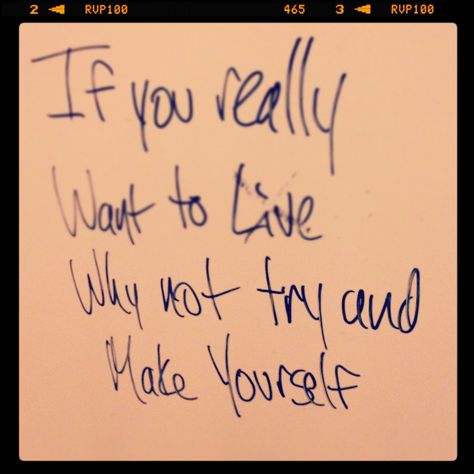 2 RVP100 465 3 RVP100
If you really
Want to Live
Why not try and
Make Yourself